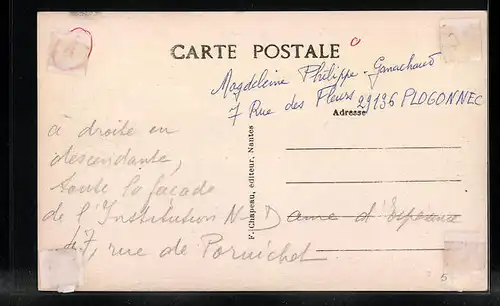 CARTE POSTALE
Magdeleine Philippe-Ganachaud
7 Rue des Fleurs 29136 PLOGONNEC
Adresse
F. Chapeau, éditeur, Nantes
à droite en
descendante,
toute la façade
de l'Institution N-D ame d'Espérance
47, rue de Pornichet
5